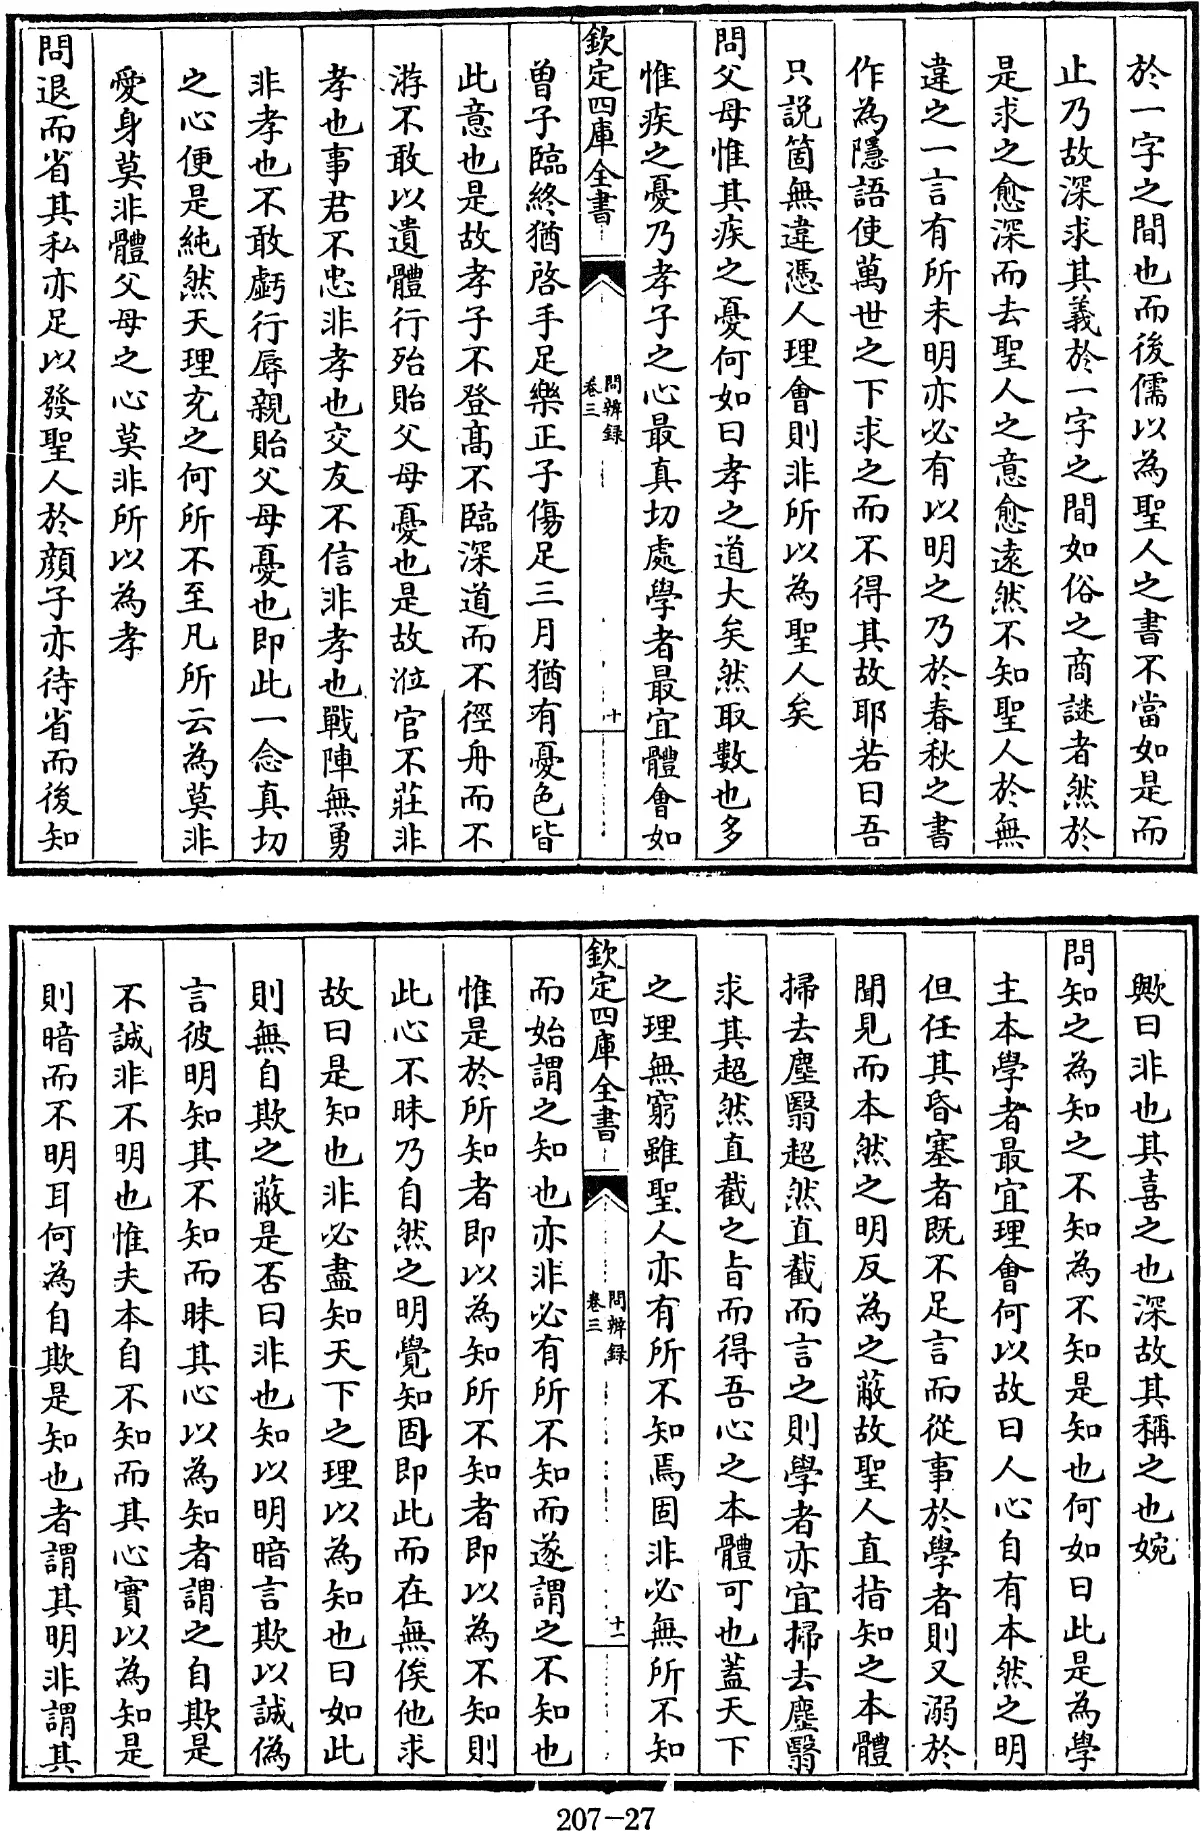 於一字之間也而後儒以為聖人之書不當如是而
止乃故深求其義於一字之間如俗之商謎者然於
是求之愈深而去聖人之意愈逺然不知聖人於無
違之一言有所未明亦必有以明之乃於春秋之書
作為隱語使萬世之下求之而不得其故耶若曰吾
只説箇無違憑人理會則非所以為聖人矣
問父母惟其疾之憂何如曰孝之道大矣然取數也多
惟疾之憂乃孝子之心最真切處學者最宜體會如
欽定四庫全書
問辨録
卷三
十
曾子臨終猶啓手足樂正子傷足三月猶有憂色皆
此意也是故孝子不登髙不臨深道而不徑舟而不
游不敢以遺體行殆貽父母憂也是故涖官不莊非
孝也事君不忠非孝也交友不信非孝也戰陣無勇
非孝也不敢虧行辱親貽父母憂也即此一念真切
之心便是純然天理充之何所不至凡所云為莫非
愛身莫非體父母之心莫非所以為孝
問退而省其私亦足以發聖人於顔子亦待省而後知
歟曰非也其喜之也深故其稱之也婉
問知之為知之不知為不知是知也何如曰此是為學
主本學者最宜理會何以故曰人心自有本然之明
但任其昏塞者既不足言而從事於學者則又溺於
聞見而本然之明反為之蔽故聖人直指知之本體
掃去塵翳超然直截而言之則學者亦宜掃去塵翳
求其超然直截之旨而得吾心之本體可也蓋天下
之理無窮雖聖人亦有所不知焉固非必無所不知
欽定四庫全書
問辨録
卷三
十一
而始謂之知也亦非必有所不知而遂謂之不知也
惟是於所知者即以為知所不知者即以為不知則
此心不昧乃自然之明覺知固即此而在無俟他求
故曰是知也非必盡知天下之理以為知也曰如此
則無自欺之蔽是否曰非也知以明暗言欺以誠僞
言彼明知其不知而昧其心以為知者謂之自欺是
不誠非不明也惟夫本自不知而其心實以為知是
則暗而不明耳何為自欺是知也者謂其明非謂其
207-27